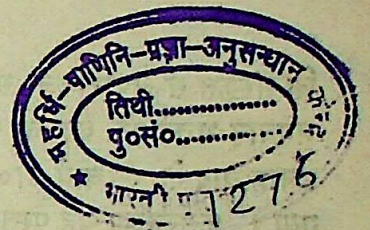 महर्षि-पाणिनि-प्रज्ञा-अनुसन्धान
तिथी................
पु०सं०................
1276